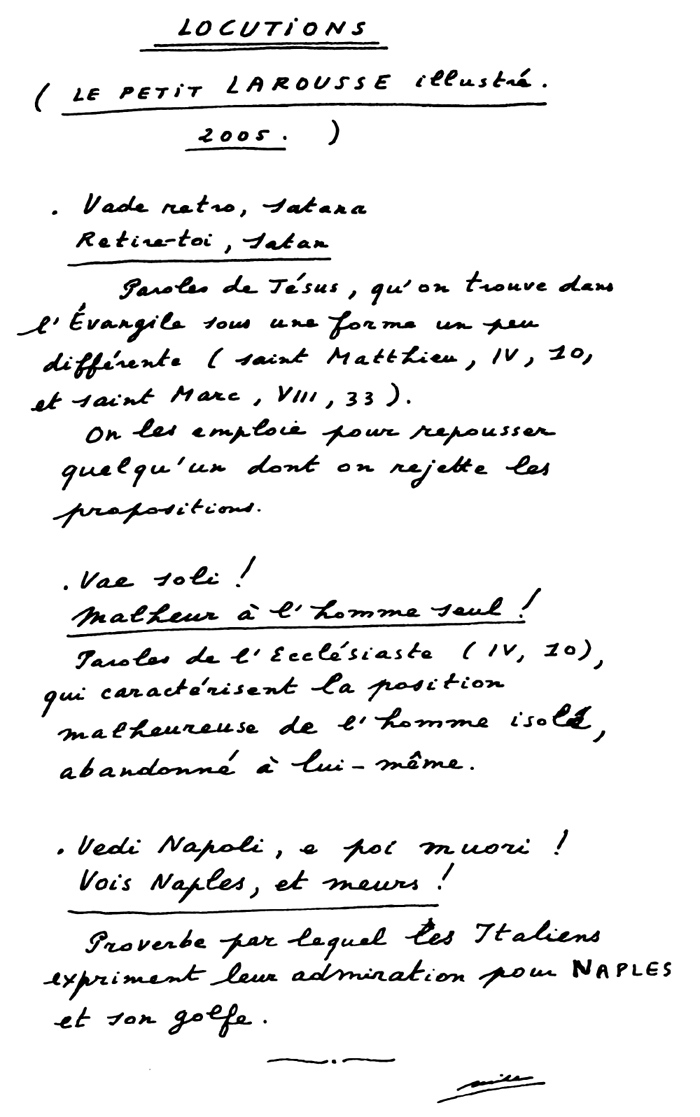 LOCUTIONS
( LE PETIT LAROUSSE illustré.
2005. )
. Vade retro, satana
Retire-toi, satan
Paroles de Jésus, qu'on trouve dans
l'Évangile sous une forme un peu
différente ( saint Matthieu, IV, 10,
et saint Marc, VIII, 33 ).
On les emploie pour repousser
quelqu'un dont on rejette les
propositions.
. Vae soli !
Malheur à l'homme seul !
Paroles de l'Ecclésiaste ( IV, 10),
qui caractérisent la position
malheureuse de l'homme isolé,
abandonné à lui-même.
. Vedi Napoli, e poi muori !
Vois Naples, et meurs !
Proverbe par lequel les Italiens
expriment leur admiration pour NAPLES
et son golfe.